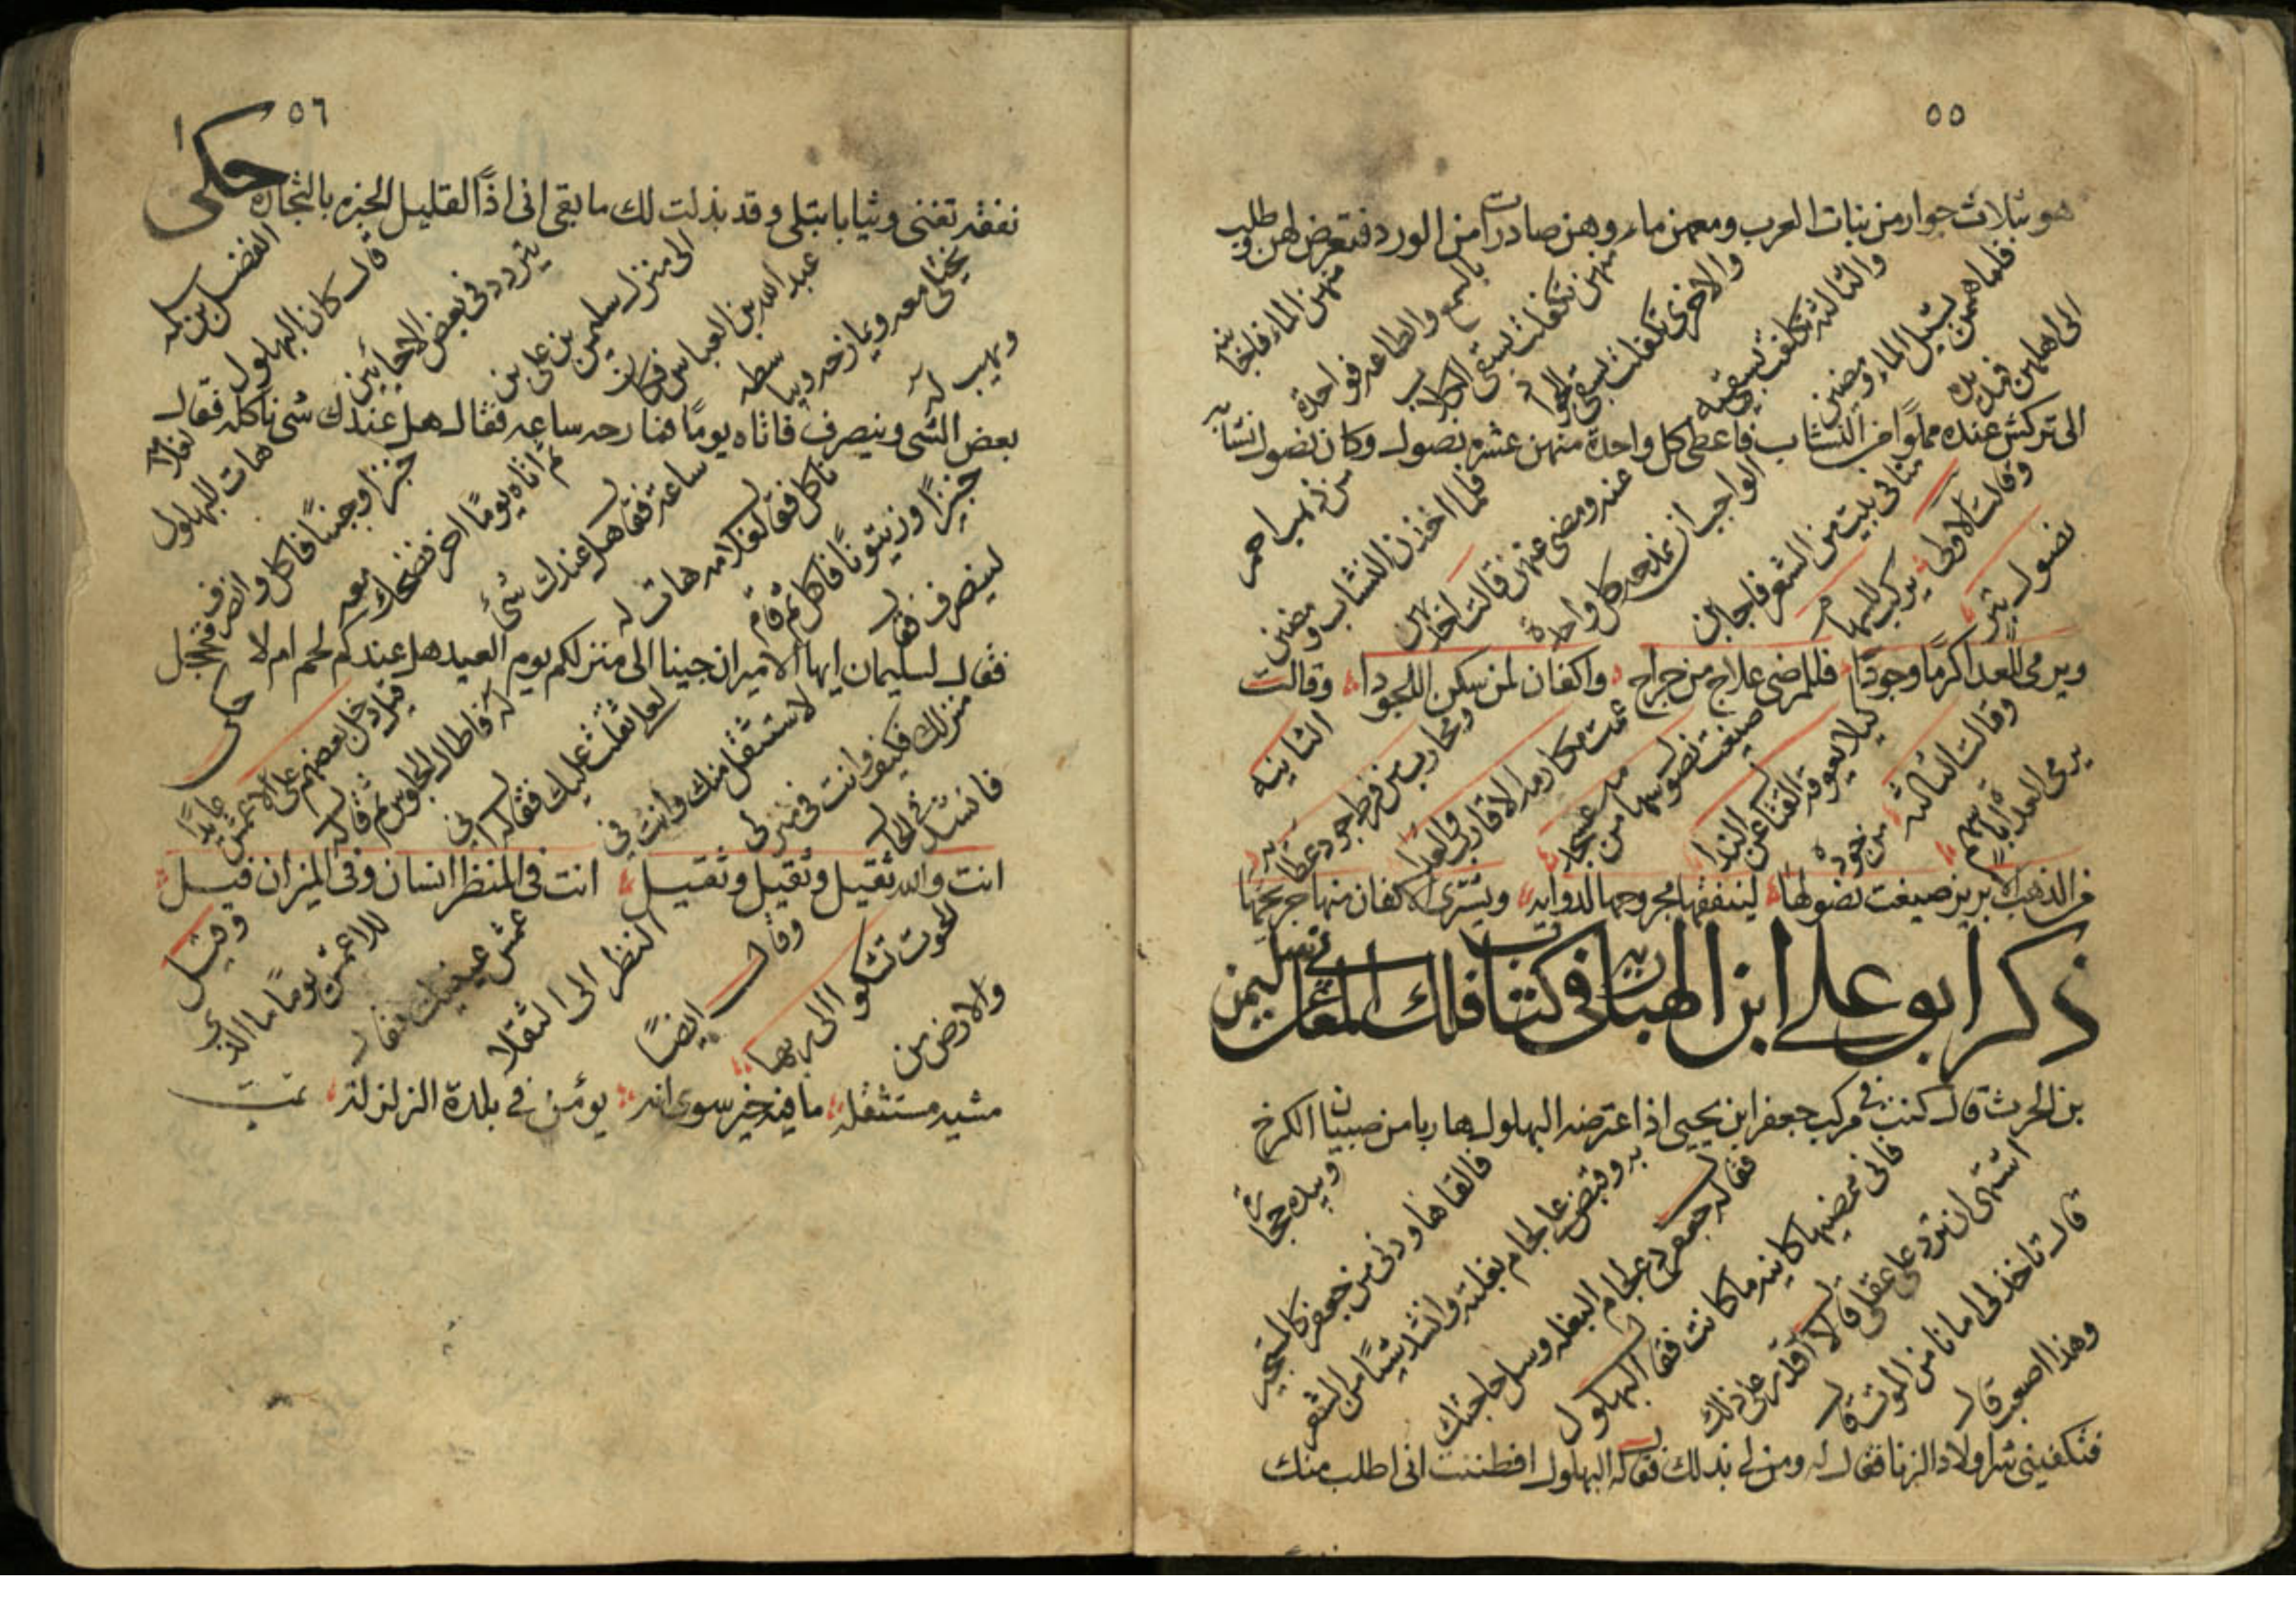 ٥٥
هو بثلاث جوار من بنات العرب ومعهن ماء وهن صادرات من الورد فتعرض لهن وطلب
منهن الماء فاجابنه
بالسمع والطاعه فواحدة
منهن تكفلت بسقى الكلاب
والاخرى تكفلت بسقى الجواد
والثالثه تكلفت بسقيه
فلما همهن تسبيل الماء ومضين
الى اهلهن فمد يده
الى تركش عنده مملوا من النشاب فاعطى كل واحدة منهن عشره نصول وكان نصول نشابه
من ذهب احمر
فلما اخذن النشاب ومضين
عنه ومضى عنهن قالت احداهن
الواجب ان نمدحه كل واحدة
منا فى بيت من الشعر فاجابن
وقالت الاولى يركب للسهام
نصول تبر
ويرمى للعدا كرما وجودا فللمرضى علاج من جراح واكفان لمن سكن اللحودا وقالت
الثانيه
ومحارب من فرط جود عطائه
عمت مكارمه الاقارب والعدا
صيغت نصول سهامه من عسجد
كيلا يعوقه القتا عن الندا
وقالت الثالثه من جوده
يرمى العداة باسهم
من الذهب الابريز صيغت نصولها لينفقها مجروحها لدوايه ويشترى الاكفان منها جريحها
ذكر ابو على ابن الهباريه فى كتاب فلك المعانى عن سليمن
بن الحرث قال كنت فى مركب جعفر ابن يحيى اذا اعترضه البهلول هاربا من صبيان الكرخ
وبيده حجارة
فالقاها ودنى من جعفر كالمستجير
به وقبض على لجام بغلته وانشد شيئا من الشعر
فقال له جعفر دع لجام البغله وسل حاجتك
فانى نمضيها كاينه ما كانت فقال البهلول
اشتهى ان ترد على عقلى قال لا اقدر على ذلك
قال تاخذ لى امانا من الموت قال
وهذا اصعب قال
فتكفينى شر اولاد الزنا فقال له ومن لى بذلك فقال له البهلول افظننت انى اطلب منك
٥٦
نفقه تفنى وثيابا تبلى وقد بذلت لك ما يبقى انى اذا القليل الخبره بالتجاره حكى
الفضل بن سلمه
قال كان البهلول
يتردد فى بعض الاحايين
الى منزل سليمن بن على بن
عبد الله بن العباس فكان
يختلى معه ويمازحه ويباسطه
ويهب له
بعض الشى وينصرف فاتاه يوما فمازحه ساعه فقال هل عندك شى ناكله فقال
لغلامه هات للبهلول
خبزا وجبنا فاكل وانصرف
ثم اتاه يوما اخر فضحك معه
ساعة فقال هل عندك شئ
ناكل فقال لغلامه هات له
خبزا وزيتونا فاكل ثم قام
لينصرف فقال
فقال لسليمان ايها الامير ان جينا الى منزلكم يوم العيد هل عندكم لحم ام لا
حكى
قيل دخل بعضهم على الاعمش عايدا
له فاطال الجلوس ثم قال له
لعل ثقلت عليك فقال له انى
لاستثقل منك وانت فى
منزلك فكيف وانت فى منزلى
فانشد فى الحال
انت والله ثقيل وثقيل وثقيل انت فى المنظر انسان وفى الميزان فيل
وقيل
للاعمش يوما ما الذى
عمش عينيك فقال
النظر الى الثقلا
وقال ايضا
لحوت تشكوا الى ربها
والارض من
مشيه مستثقله ما فيه خير سوى انه يؤمن فى بلدة الزلزله تمت